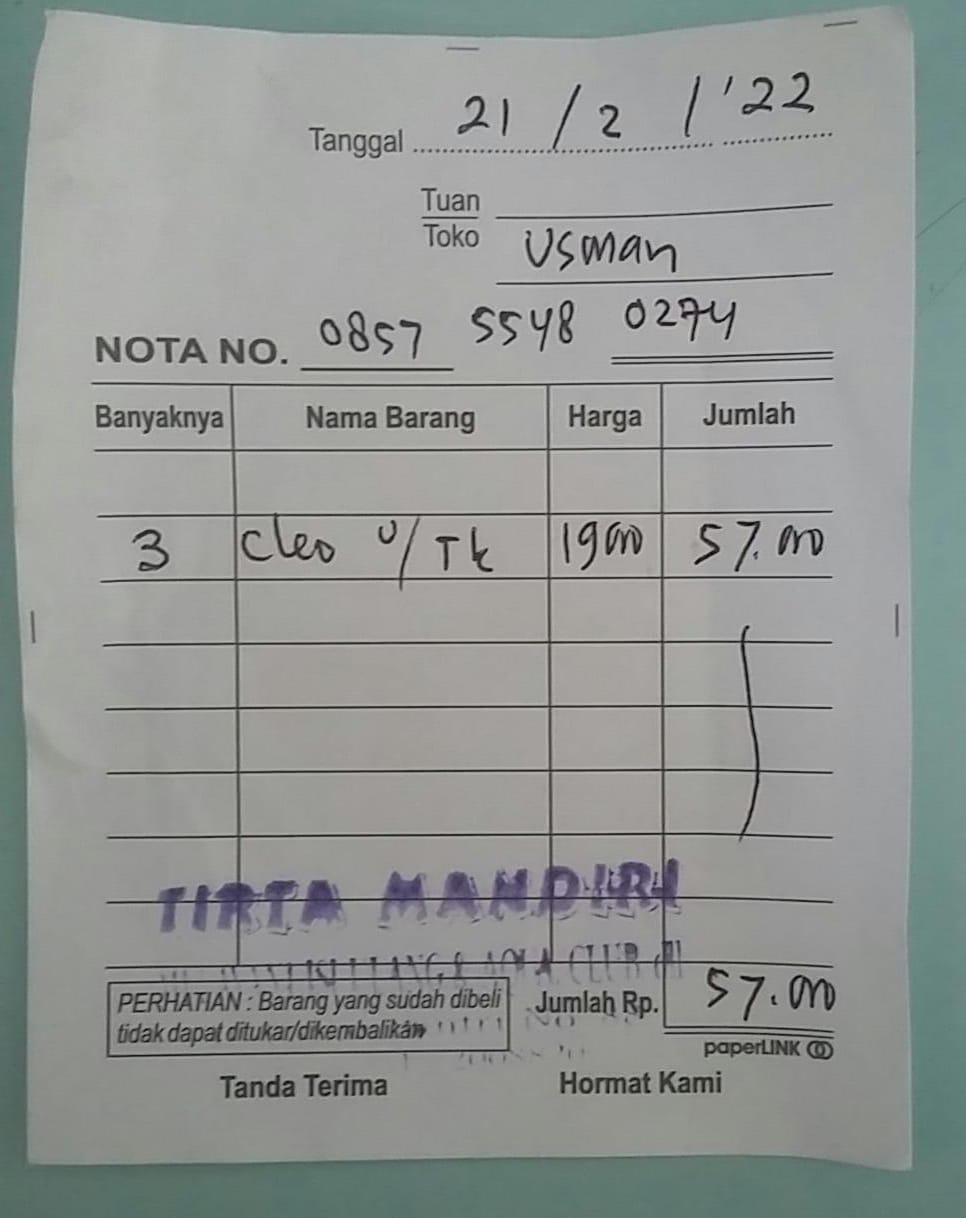 Tanggal 21 / 2 / '22
Tuan
Toko Usman
NOTA NO. 0857 5548 0274
Banyaknya Nama Barang Harga Jumlah
3 Cleo u/ Tk 19000 57.000
TIRTA MANDIRI
CLUB
PERHATIAN : Barang yang sudah dibeli
tidak dapat ditukar/dikembalikan
Jumlah Rp. 57.000
paperLINK
Tanda Terima Hormat Kami